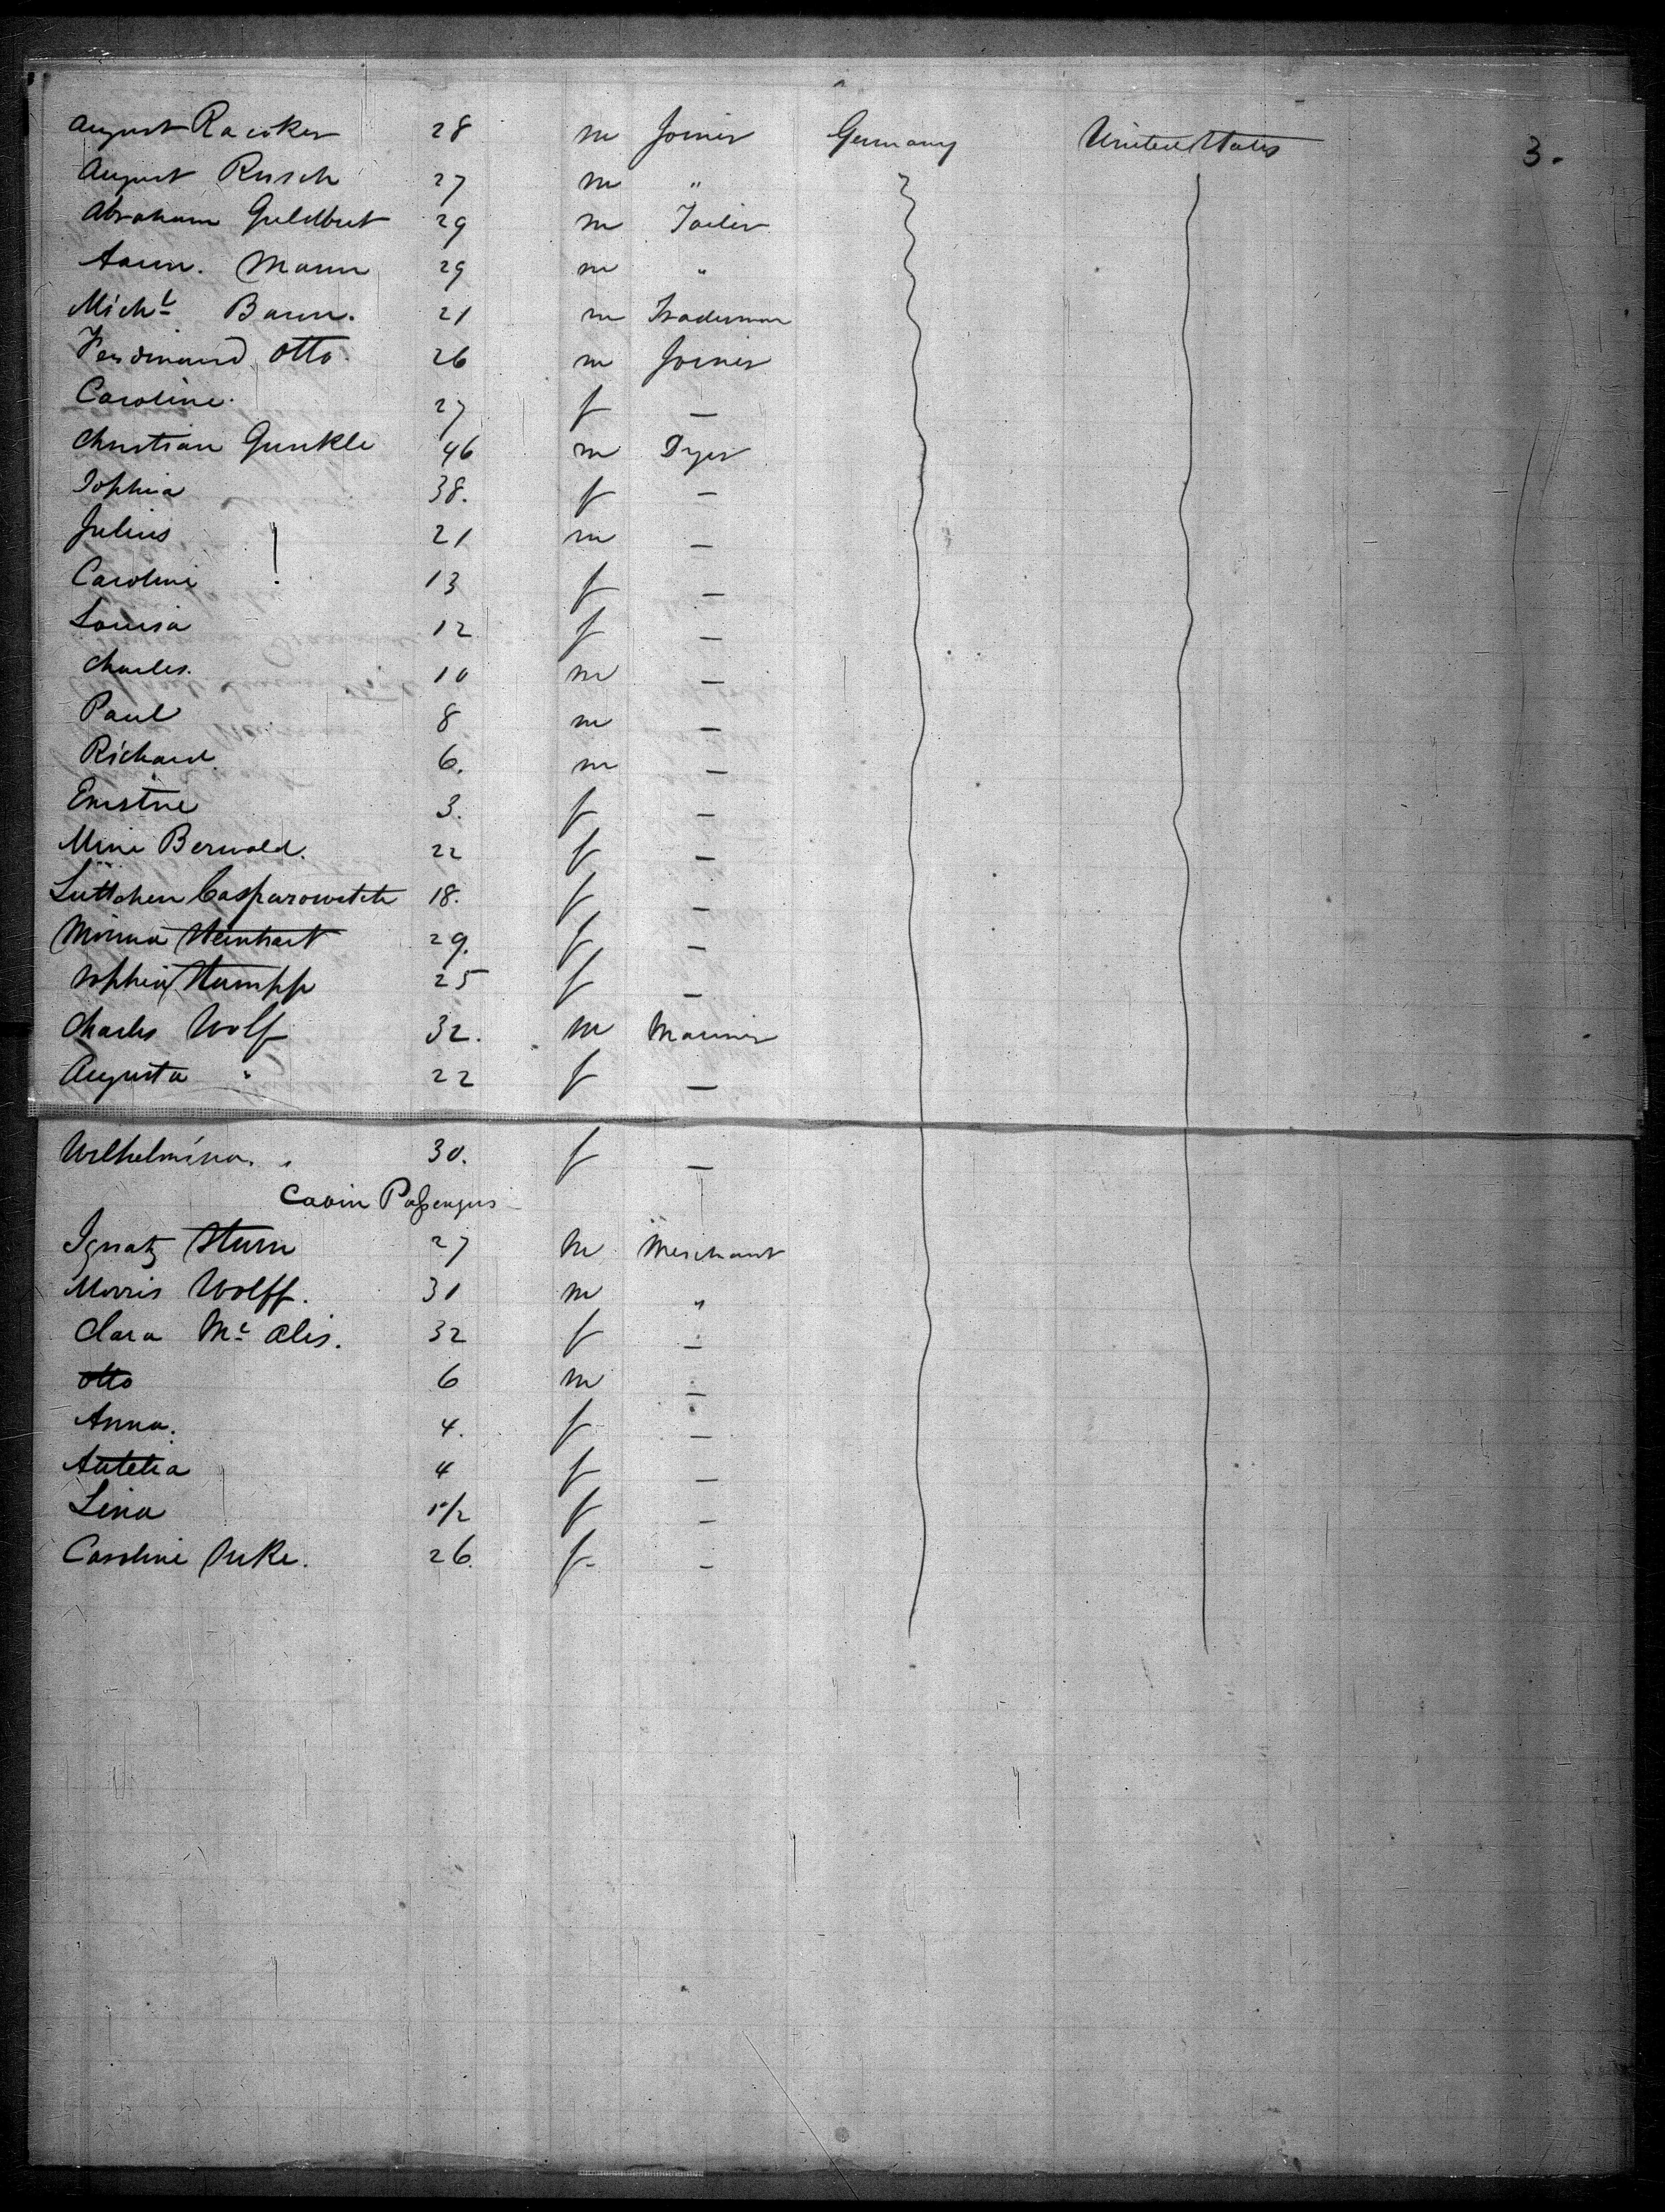 August Racoker 28 m Joiner Germany United States 3.
August Rusch 27 m "
Abraham Guldbret 29 m Tailor
Aaron. Mann 29 m "
Michl Baum. 21 m Tradesman
Ferdinand Otto. 26 m Joiner
Caroline. 27 f —
Christian Gunkle 46 m Dyer
Sophia 38. f —
Julius 21 m —
Caroline 13 f —
Louisa 12 f —
Charles. 10 m —
Paul 8 m —
Richard 6. m —
Ernstne 3. f —
Mine Berwald. 22 f —
Lüttchen Casparowitch 18. f —
Minna Steinhart 29. f —
Sophia Stumpp 25 f —
Charles Wolf 32. m Mariner
Augusta " 22 f —
Wilhelmina. " 30. f —
Cabin Passengers
Ignatz Sturn 27 m Merchant
Morris Wolff. 31 m "
Clara Mc Alis. 32 f —
Otto 6 m —
Anna. 4. f —
4 f —
Lina 1 1/2 f —
Caroline 26. f —